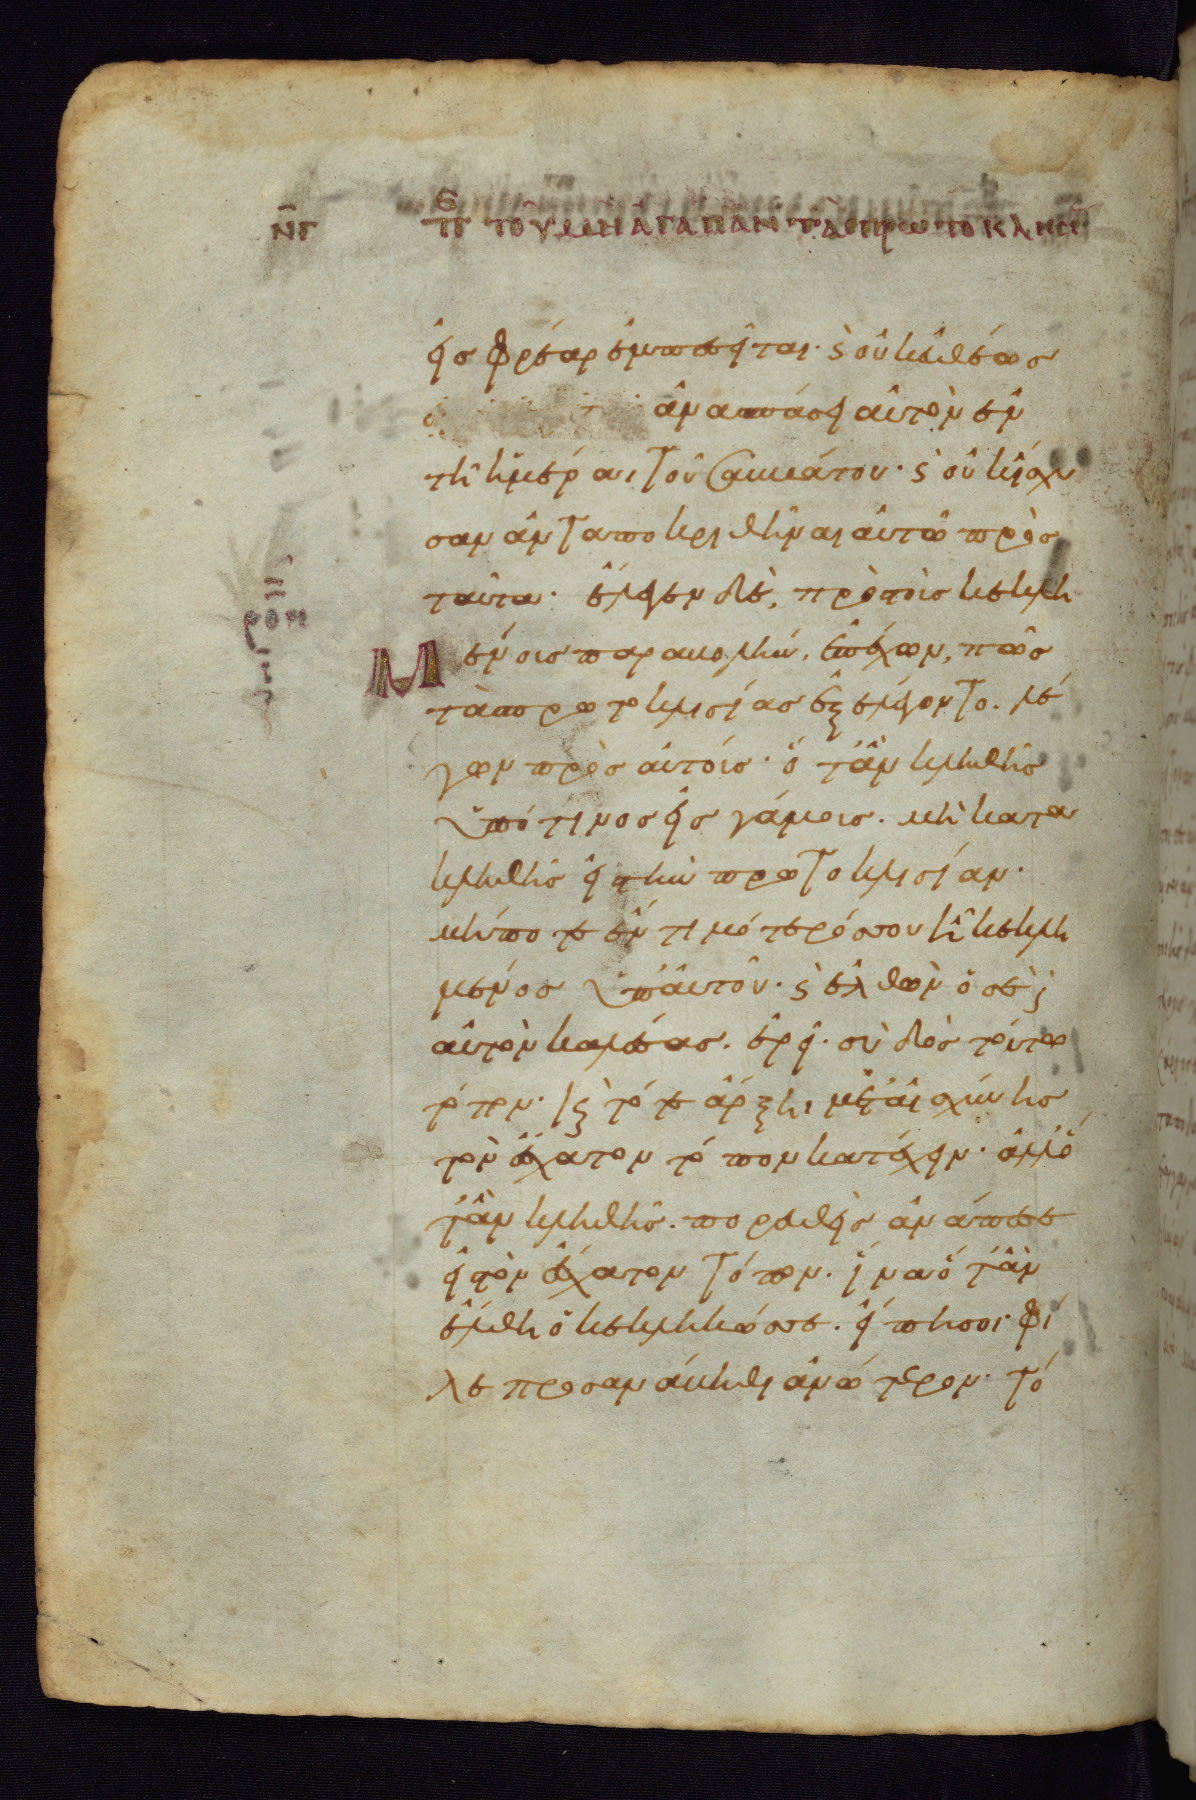 ΝΓ ΠΕ ΤΟΥ ΜΗ ΑΓΑΠΑΝ ΤΑΣ ΠΡΩΤΟΚΛΗϹΙ
εἰς φρέαρ ἐμπεσεῖται· ϗ οὐκ εὐθέως
ἀνασπάσει αὐτὸν ἐν
τῆ ἡμέραι τοῦ σαββάτου· ϗ οὐκ ἴσχυ
σαν ἀνταποκριθῆναι αὐτῶ πρὸς
ταῦτα· ἔλεγεν δὲ, πρὸς τοὺς κεκλη
μένους παραβολὴν, ἐπέχων, πῶς
τὰς πρωτοκλισίας ἐξελέγοντο. λέ
γων πρὸς αὐτούς· ὅταν κληθῆς
ὑπό τινος εἰς γάμους. μὴ κατα
κληθῆς εἰς τὴν πρωτοκλισίαν·
μήποτε ἐντιμότερός σου ἦ κεκλη
μένος ὑπ' αὐτοῦ· ϗ ἐλθὼν ὁ σὲ ϗ
αὐτὸν καλέσας. ἐρεῖ σοι· δὸς τούτω
τόπον· ϗ τότε ἄρξηι μετ' αἰσχύνης
τὸν ἔσχατον τόπον κατέχειν· ἀλλ' ὅ
ταν κληθῆς. πορευθεὶς ἀνάπεσε
εἰς τὸν ἔσχατον τόπον. ἵνα ὅταν
ἔλθη ὁ κεκληκώς σε. εἴπη σοι· φί
λε προσανάβηθι ἀνώτερον· τό